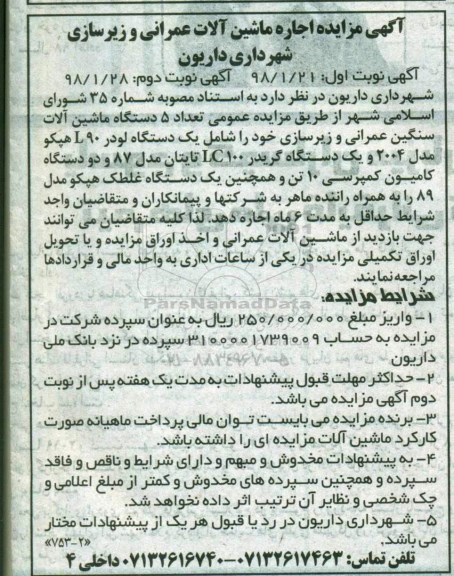 آگهی مزایده اجاره ماشین آلات عمرانی و زیرسازی
شهرداری داریون
آگهی نوبت اول: ۹۸/۱/۲۱ آگهی نوبت دوم: ۹۸/۱/۲۸
شهرداری داریون در نظر دارد به استناد مصوبه شماره ۳۵ شورای
اسلامی شهر از طریق مزایده عمومی تعداد ۵ دستگاه ماشین آلات
سنگین عمرانی و زیرسازی خود را شامل یک دستگاه لودر L۹۰ هپکو
مدل ۲۰۰۴ و یک دستگاه گریدر LC۱۰۰ تایتان مدل ۸۷ و دو دستگاه
کامیون کمپرسی ۱۰ تن و همچنین یک دستگاه غلطک هپکو مدل
۸۹ را به همراه راننده ماهر به شرکتها و پیمانکاران و متقاضیان واجد
شرایط حداقل به مدت ۶ ماه اجاره دهد. لذا کلیه متقاضیان می توانند
جهت بازدید از ماشین آلات عمرانی و اخذ اوراق مزایده و یا تحویل
اوراق تکمیلی مزایده در یکی از ساعات اداری به واحد مالی و قراردادها
مراجعه نمایند.
شرایط مزایده:
۱- واریز مبلغ ۲۵۰/۰۰۰/۰۰۰ ریال به عنوان سپرده شرکت در
مزایده به حساب ۳۱۰۰۰۰۱۷۳۹۰۰۹ سپرده در نزد بانک ملی
داریون
۲- حداکثر مهلت قبول پیشنهادات به مدت یک هفته پس از نوبت
دوم آگهی مزایده می باشد.
۳- برنده مزایده می بایست توان مالی پرداخت ماهیانه صورت
کارکرد ماشین آلات مزایده ای را داشته باشد.
۴- به پیشنهادات مخدوش و مبهم و دارای شرایط و ناقص و فاقد
سپرده و همچنین سپرده های مخدوش و کمتر از مبلغ اعلامی و
چک شخصی و نظایر آن ترتیب اثر داده نخواهد شد.
۵- شهرداری داریون در رد یا قبول هر یک از پیشنهادات مختار
می باشد. «۷۵۳-۲»
تلفن تماس: ۰۷۱۳۲۶۱۷۴۶۳-۰۷۱۳۲۶۱۶۷۴۰ داخلی ۴
ParsNamadData